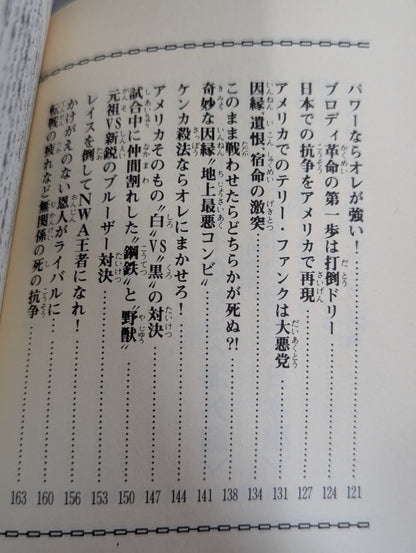 パワーならオレが強い！ 121
ブロディ革命の第一歩は打倒ドリー 124
日本での抗争をアメリカで再現 127
アメリカでのテリー・ファンクは大悪党 131
因縁、遺恨、宿命の激突 134
このまま戦わせたらどちらかが死ぬ?! 138
奇妙な因縁〝地上最悪コンビ〟 141
ケンカ殺法ならオレにまかせろ！ 144
アメリカそのもの〝白〟VS〝黒〟の対決 147
試合中に仲間割れした〝鋼鉄〟と〝野獣〟 150
元祖VS新鋭のブルーザー対決 153
レイスを倒してNWA王者になれ！ 156
かけがえのない恩人がライバルに 160
転戦の疲れなど無関係の死の抗争 163